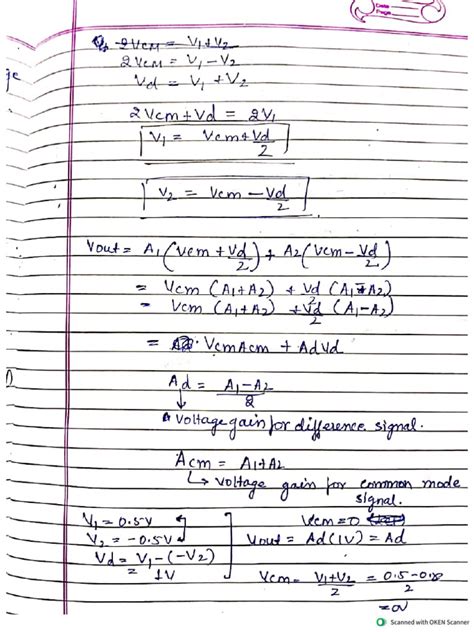 Date
Page
2Vcm = V1+V2
2Vcm = V1-V2
Vd = V1+V2
2Vcm+Vd = 2V1
V1 = Vcm+Vd/2
V2 = Vcm-Vd/2
Vout = A1(Vcm+Vd/2)+A2(Vcm-Vd/2)
= Vcm (A1+A2) + Vd/2 (A1-A2)
= Vcm (A1+A2) + Vd/2 (A1-A2)
= VcmAcm + AdVd
Ad = A1-A2/2
↓
voltage gain for difference signal.
Acm = A1+A2
↳ voltage gain for common mode signal.
V1 = 0.5V
Vcm=0
V2 = -0.5V
Vout = Ad(1V) = Ad
Vd = V1-(-V2)
= 1V
Vcm = V1+V2/2 = 0.5-0.5/2
=0V
Scanned with OKEN Scanner